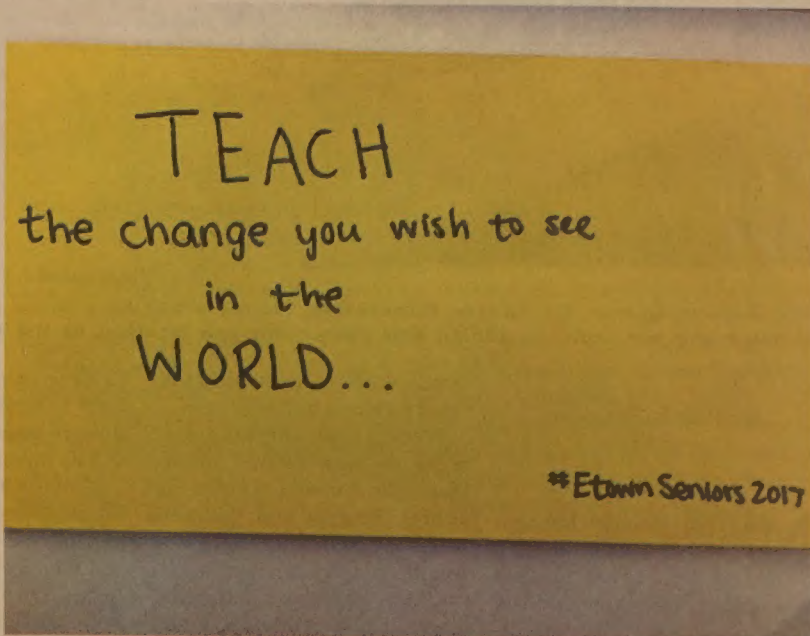 TEACH
the change you wish to see
in the
WORLD...
#Etown Seniors 2017